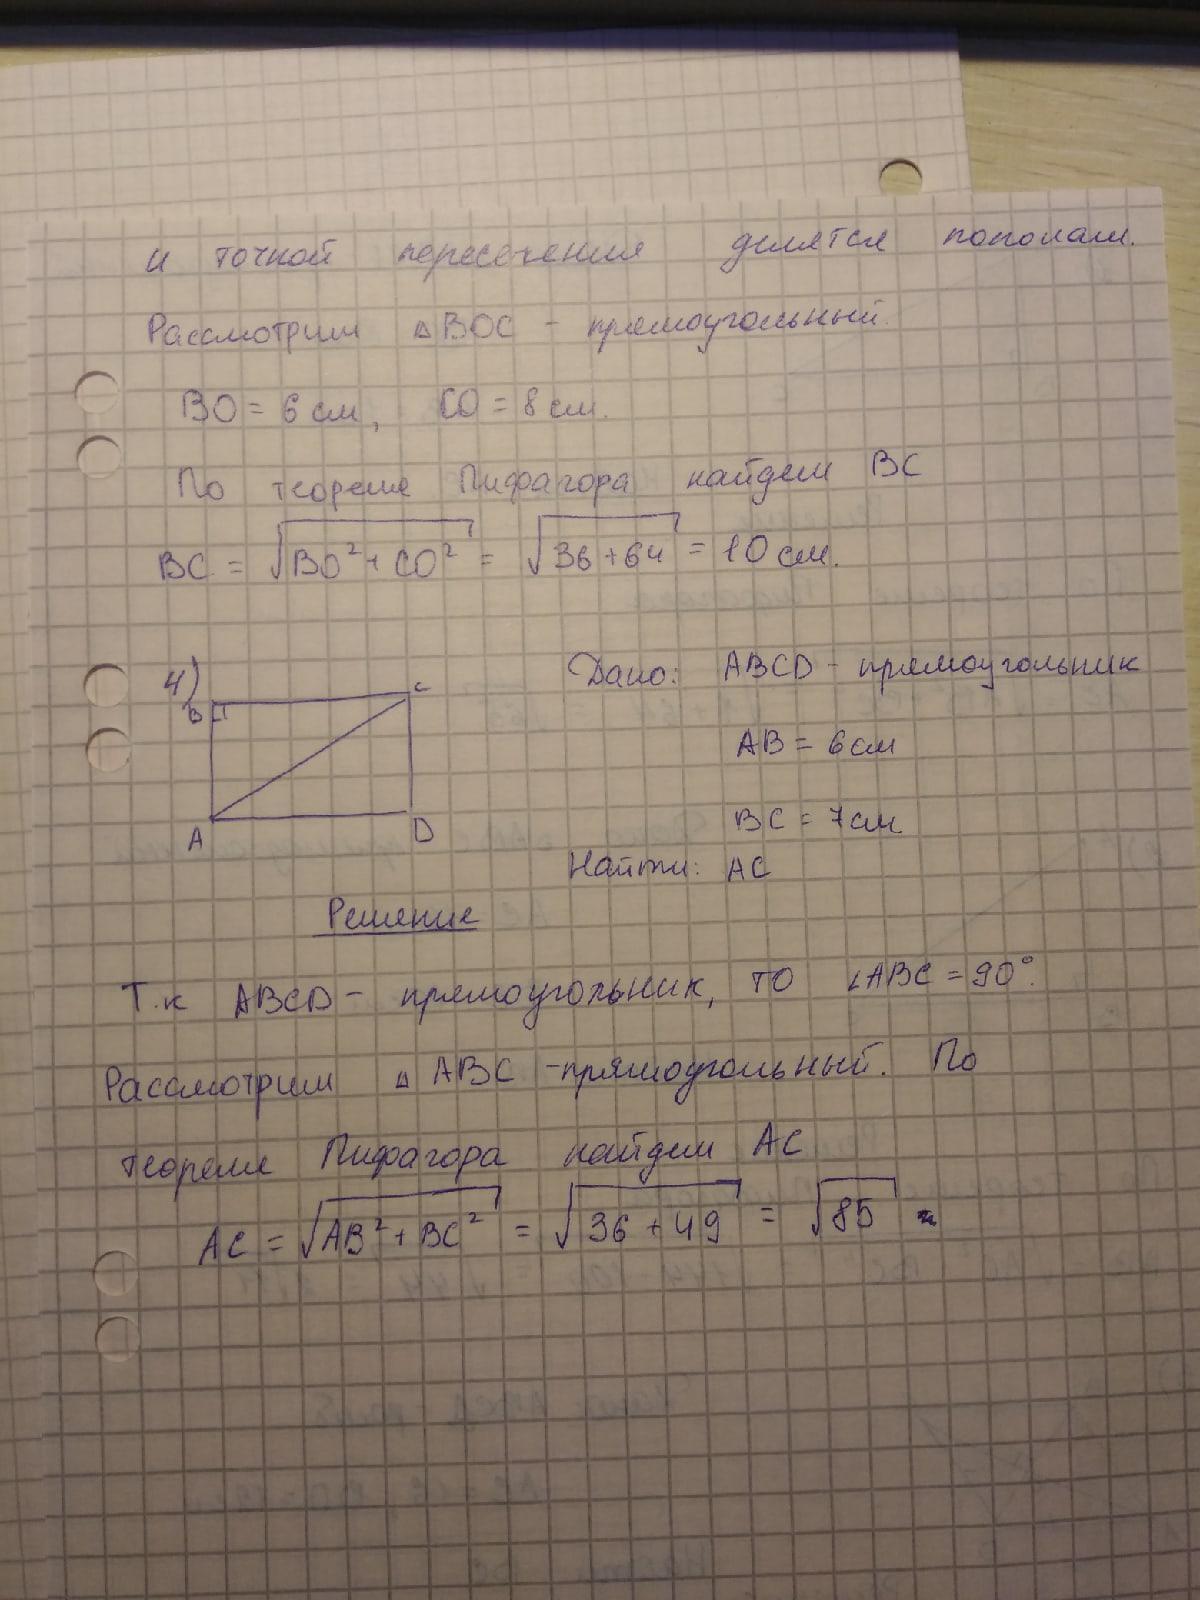 и точкой пересечения делятся пополам.
Рассмотрим △BOC - прямоугольный.
BO = 6 см, CO = 8 см.
По теореме Пифагора найдем BC
BC = √BO² + CO² = √36 + 64 = 10 см.
4)
B C
A D
Дано: ABCD - прямоугольник
AB = 6 см
BC = 7 см
Найти: AC
Решение
Т.к ABCD - прямоугольник, то ∠ABC = 90°.
Рассмотрим △ ABC - прямоугольный. По
теореме Пифагора найдем AC
AC = √AB² + BC² = √36 + 49 = √85